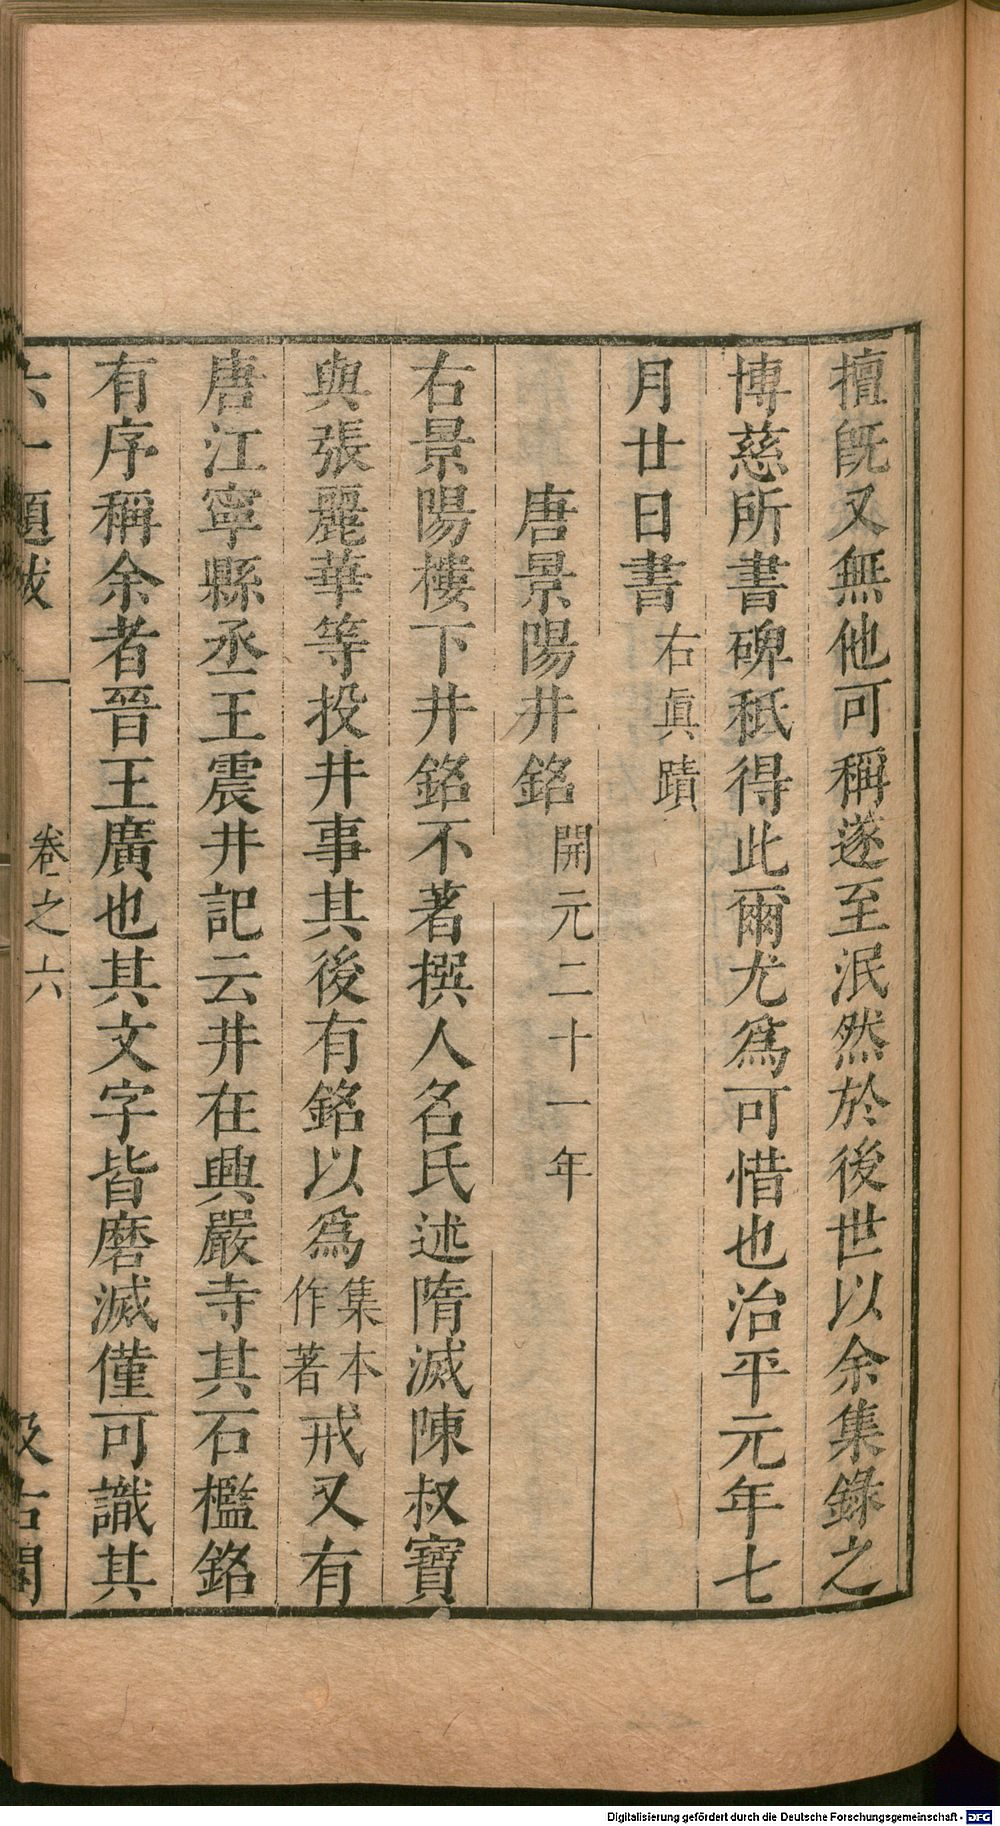 擅旣又無他可稱遂至泯然於後世以余集錄之
博慈所書碑秪得此爾尤爲可惜也治平元年七
月廿日書右眞蹟
唐景陽井銘開元二十一年
右景陽樓下井銘不著撰人名氏述隋滅陳叔寶
與張麗華等投井事其後有銘以爲集本作著戒又有
唐江寧縣丞王震井記云井在興嚴寺其石檻銘
有序稱余者晉王廣也其文字皆磨滅僅可識其
六一題跋 卷之六 汲古閣
Digitalisierung gefördert durch die Deutsche Forschungsgemeinschaft - DFG